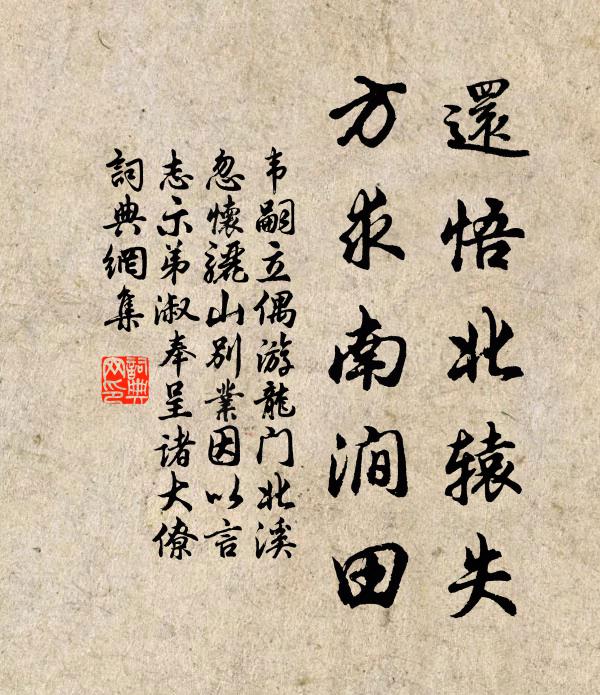 還悟北辕失
方求南涧田
韦嗣立偶游龍门北溪
忽懷驪山别業因以言
志示弟淑奉呈诸大僚
詞典網集
詞典网印